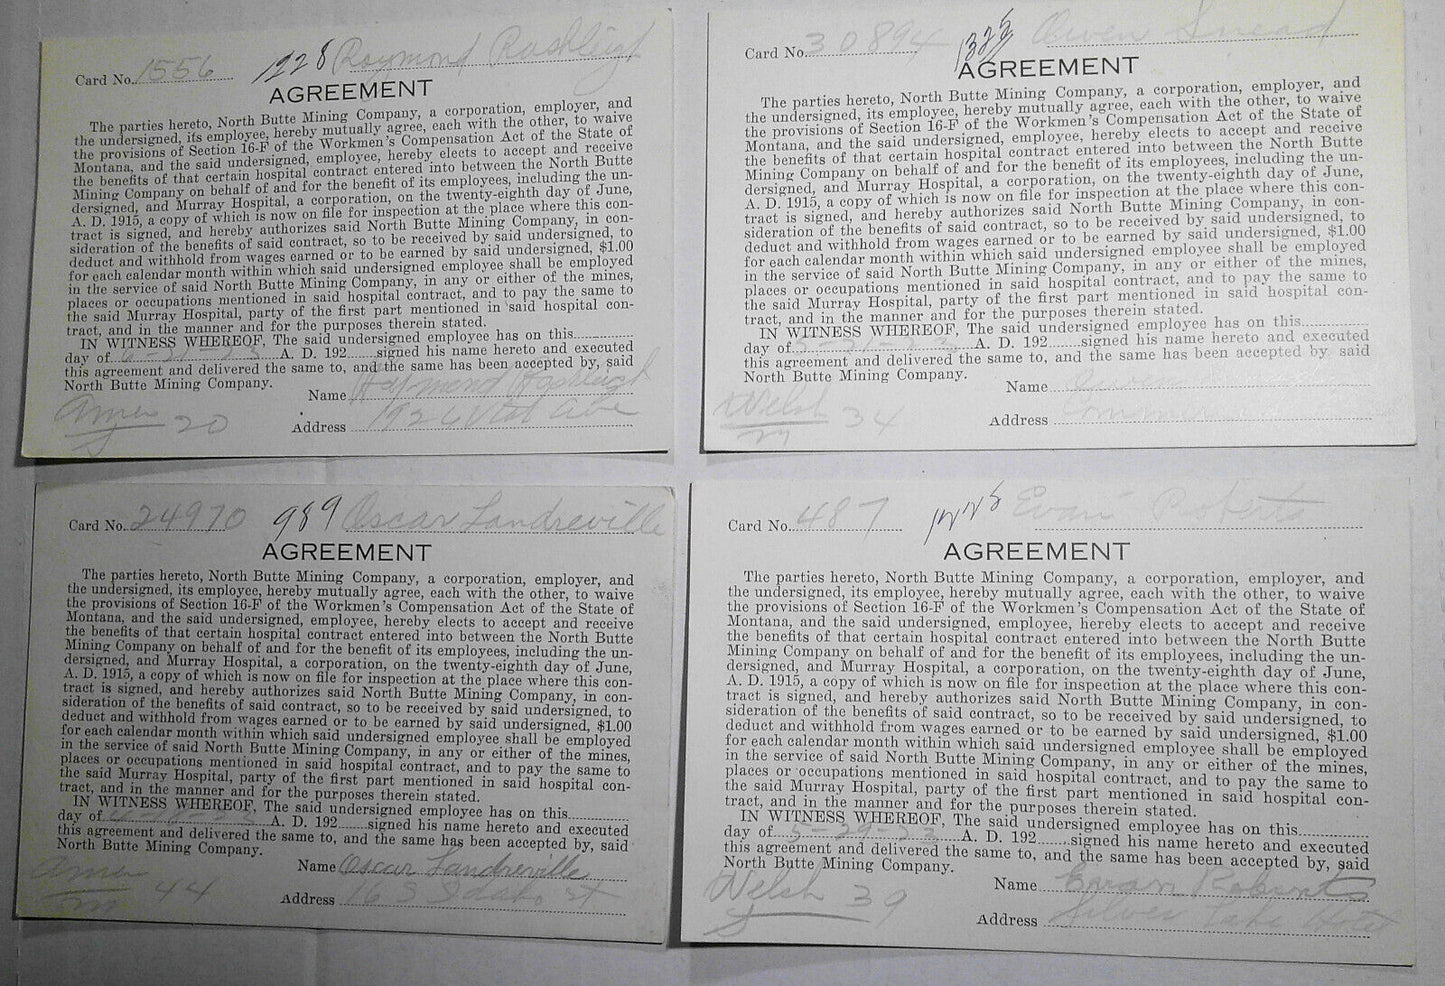 Card No. 1556 1228 Raymond Rashleigh
AGREEMENT
The parties hereto, North Butte Mining Company, a corporation, employer, and
the undersigned, its employee, hereby mutually agree, each with the other, to waive
the provisions of Section 16-F of the Workmen's Compensation Act of the State of
Montana, and the said undersigned, employee, hereby elects to accept and receive
the benefits of that certain hospital contract entered into between the North Butte
Mining Company on behalf of and for the benefit of its employees, including the un-
dersigned, and Murray Hospital, a corporation, on the twenty-eighth day of June,
A. D. 1915, a copy of which is now on file for inspection at the place where this con-
tract is signed, and hereby authorizes said North Butte Mining Company, in con-
sideration of the benefits of said contract, so to be received by said undersigned, to
deduct and withhold from wages earned or to be earned by said undersigned, $1.00
for each calendar month within which said undersigned employee shall be employed
in the service of said North Butte Mining Company, in any or either of the mines,
places or occupations mentioned in said hospital contract, and to pay the same to
the said Murray Hospital, party of the first part mentioned in said hospital con-
tract, and in the manner and for the purposes therein stated.
IN WITNESS WHEREOF, The said undersigned employee has on this
day of 6-21-23 A. D. 192 signed his name hereto and executed
this agreement and delivered the same to, and the same has been accepted by, said
North Butte Mining Company.
Name Raymond Rashleigh
Amer 20
Address Ave
Card No. 30894 1322 Owen Snead
AGREEMENT
The parties hereto, North Butte Mining Company, a corporation, employer, and
the undersigned, its employee, hereby mutually agree, each with the other, to waive
the provisions of Section 16-F of the Workmen's Compensation Act of the State of
Montana, and the said undersigned, employee, hereby elects to accept and receive
the benefits of that certain hospital contract entered into between the North Butte
Mining Company on behalf of and for the benefit of its employees, including the un-
dersigned, and Murray Hospital, a corporation, on the twenty-eighth day of June,
A. D. 1915, a copy of which is now on file for inspection at the place where this con-
tract is signed, and hereby authorizes said North Butte Mining Company, in con-
sideration of the benefits of said contract, so to be received by said undersigned, to
deduct and withhold from wages earned or to be earned by said undersigned, $1.00
for each calendar month within which said undersigned employee shall be employed
in the service of said North Butte Mining Company, in any or either of the mines,
places or occupations mentioned in said hospital contract, and to pay the same to
the said Murray Hospital, party of the first part mentioned in said hospital con-
tract, and in the manner and for the purposes therein stated.
IN WITNESS WHEREOF, The said undersigned employee has on this
day of A. D. 192 signed his name hereto and executed
this agreement and delivered the same to, and the same has been accepted by said
North Butte Mining Company.
Name Owen
Welsh 34
Address
Card No. 24970 989 Oscar Landreville
AGREEMENT
The parties hereto, North Butte Mining Company, a corporation, employer, and
the undersigned, its employee, hereby mutually agree, each with the other, to waive
the provisions of Section 16-F of the Workmen's Compensation Act of the State of
Montana, and the said undersigned, employee, hereby elects to accept and receive
the benefits of that certain hospital contract entered into between the North Butte
Mining Company on behalf of and for the benefit of its employees, including the un-
dersigned, and Murray Hospital, a corporation, on the twenty-eighth day of June,
A. D. 1915, a copy of which is now on file for inspection at the place where this con-
tract is signed, and hereby authorizes said North Butte Mining Company, in con-
sideration of the benefits of said contract, so to be received by said undersigned, to
deduct and withhold from wages earned or to be earned by said undersigned, $1.00
for each calendar month within which said undersigned employee shall be employed
in the service of said North Butte Mining Company, in any or either of the mines,
places or occupations mentioned in said hospital contract, and to pay the same to
the said Murray Hospital, party of the first part mentioned in said hospital con-
tract, and in the manner and for the purposes therein stated.
IN WITNESS WHEREOF, The said undersigned employee has on this
day of A. D. 192 signed his name hereto and executed
this agreement and delivered the same to, and the same has been accepted by, said
North Butte Mining Company.
Name Oscar Landreville
Amer 44
Address 16 S Idaho st
Card No. 487 1225 Evan Roberts
AGREEMENT
The parties hereto, North Butte Mining Company, a corporation, employer, and
the undersigned, its employee, hereby mutually agree, each with the other, to waive
the provisions of Section 16-F of the Workmen's Compensation Act of the State of
Montana, and the said undersigned, employee, hereby elects to accept and receive
the benefits of that certain hospital contract entered into between the North Butte
Mining Company on behalf of and for the benefit of its employees, including the un-
dersigned, and Murray Hospital, a corporation, on the twenty-eighth day of June,
A. D. 1915, a copy of which is now on file for inspection at the place where this con-
tract is signed, and hereby authorizes said North Butte Mining Company, in con-
sideration of the benefits of said contract, so to be received by said undersigned, to
deduct and withhold from wages earned or to be earned by said undersigned, $1.00
for each calendar month within which said undersigned employee shall be employed
in the service of said North Butte Mining Company, in any or either of the mines,
places or occupations mentioned in said hospital contract, and to pay the same to
the said Murray Hospital, party of the first part mentioned in said hospital con-
tract, and in the manner and for the purposes therein stated.
IN WITNESS WHEREOF, The said undersigned employee has on this
day of 5-29-23 A. D. 192 signed his name hereto and executed
this agreement and delivered the same to, and the same has been accepted by, said
North Butte Mining Company.
Name Evan Roberts
Welsh 39
Address Silver Lake Hotel